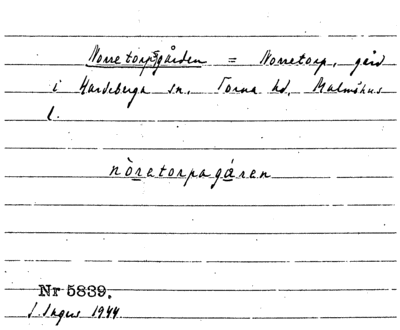 Norretorpsgården = Norretorp, gård
i Hardeberga sn, Torna hd, Malmöhus
l.
nòretorpagáren
Nr 5839.
J. Ingers 1944.